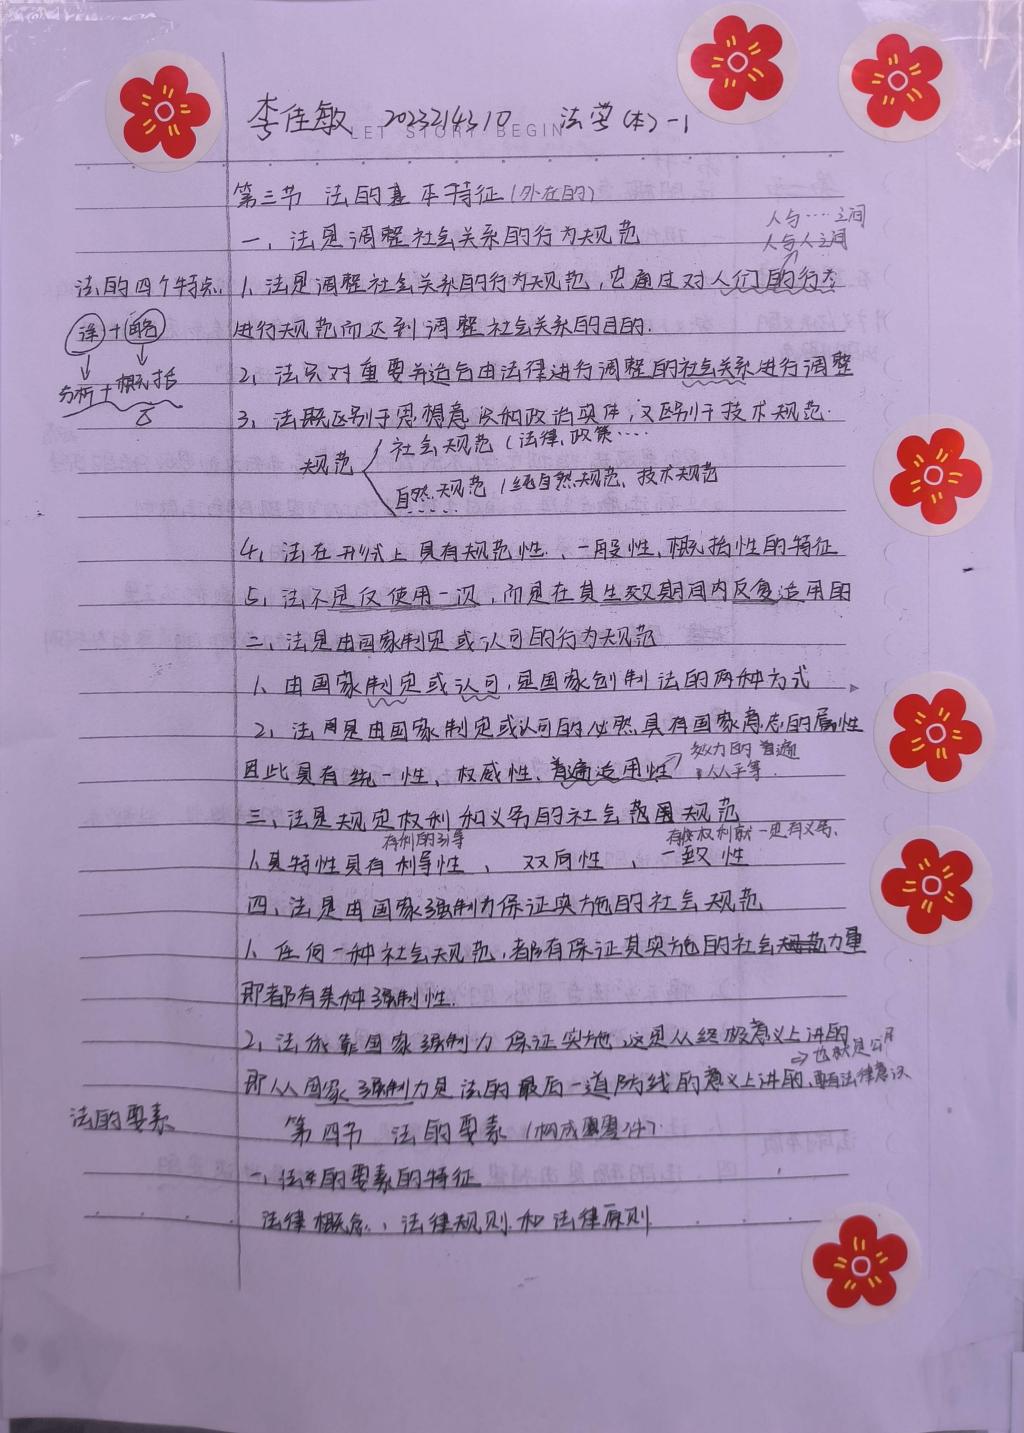 李佳敏 2023214310 法学(本)-1
LET STORY BEGIN
第三节 法的基本特征(外在的)
一、法是调整社会关系的行为规范
人与····之间
人与人之间
法的四个特点
1、法是调整社会关系的行为规范,它通过对人们的行为
详+略
进行规范而达到调整社会关系的目的.
分析+概括
2、法只对重要并适合由法律进行调整的社会关系进行调整
3、法既区别于思想意识和政治实体,又区别于技术规范.
规范
社会规范(法律、政策····
自然规范(纯自然规范、技术规范
4、法在形式上具有规范性、一般性、概括性的特征
5、法不是仅使用一次,而是在其生效期间内反复适用的
二、法是由国家制定或认可的行为规范
1、由国家制定或认可,是国家创制法的两种方式
2、法是由国家制定或认可的必然具有国家意志的属性
因此具有统一性、权威性、普遍适用性
效力的普遍
人人平等.
三、法是规定权利和义务的社会规范
有利的引导
有权利就一定有义务.
1、其特性具有利导性、双向性、一致性
四、法是由国家强制力保证实施的社会规范
1、任何一种社会规范,都有保证其实施的社会力量
即都有某种强制性.
2、法依靠国家强制力保证实施,这是从终极意义上讲的
即从国家强制力是法的最后一道防线的意义上讲的,
要有法律意识
法的要素
第四节 法的要素(构成要件).
一、法律的要素的特征
法律概念、法律规则和法律原则